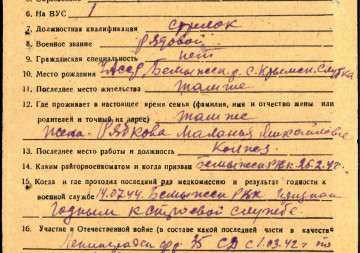 6. На ВУС 1
7. Должностная квалификация стрелок
8. Военное звание Рядовой
9. Гражданская специальность нет
10. Место рождения Бемыжск. р. с. Крымск. Слудка
11. Последнее место жительства там же
12. Где проживает в настоящее время семья (фамилия, имя и отчество жены или
родителей и точный их адрес) там же
жена - Рябкова Маланья Михайловна
13. Последнее место работы и должность Колхоз
14. Каким райгорвоенкоматом и когда призван Бемыжск РВК 26.2.42 г.
15. Когда и где проходил последний раз медкомиссию и результат годности к
военной службе 14.07.44. Бемыжск РВК признан
годным к строевой службе.
16. Участие в Отечественной войне (в составе какой последней части в качестве
Ленинградск. фр. СД с 1.03.42 г. по